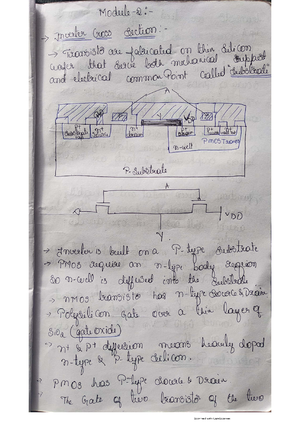 Module-2:-
→ Inverter Cross Section:-
→ Transistor are fabricated on thin silicon
wafer that serve both mechanical support
and electrical common point called "Substrate"
A
Y
n-well
PMOS
P-Substrate
A
VDD
Y
→ Inverter is built on a P-type Substrate
→ PMOS require an n-type body region
So n-well is diffused into the Substrate
→ nMOS transistor has n-type Source & Drain
→ Polysilicon Gate over a thin layer of
SiO2 (gate oxide)
→ n+ & P+ diffusion means heavily doped
n-type & P-type silicon.
→ PMOS has P-type Source & Drain
The Gate of two transistor of the two